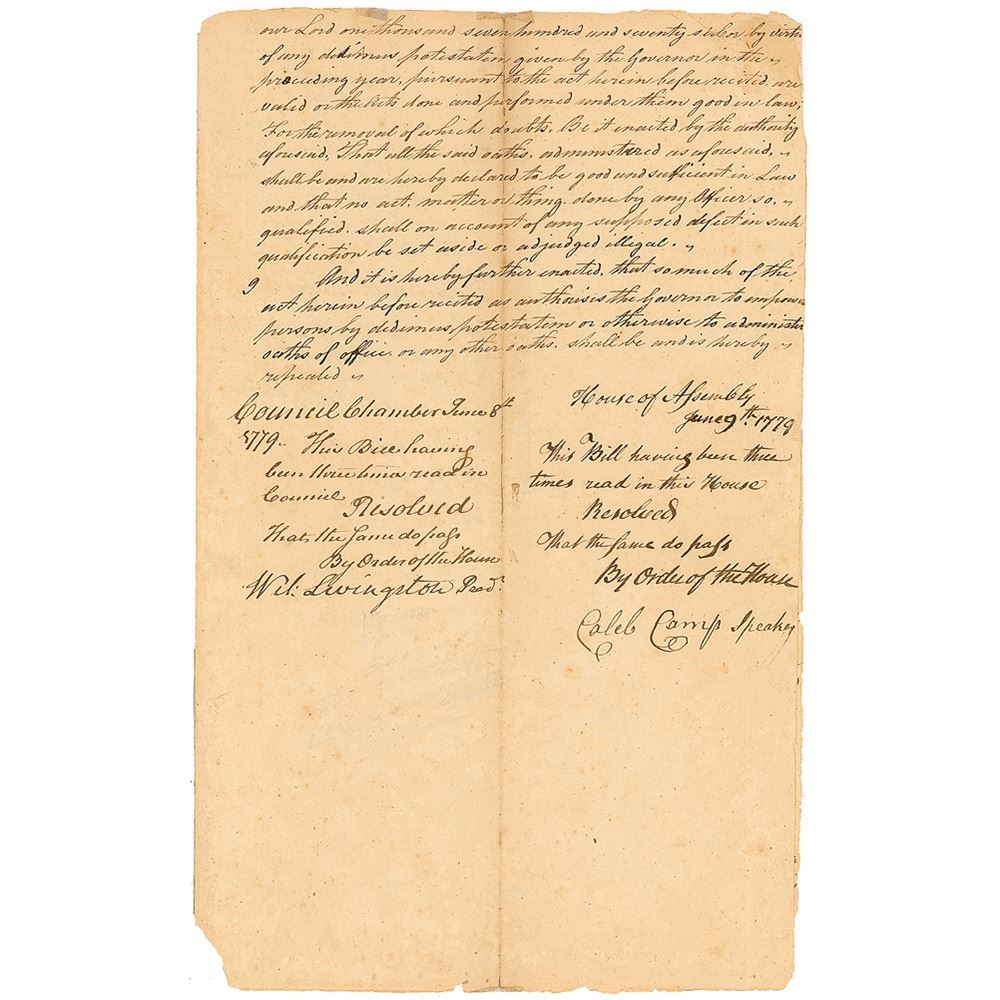 our Lord one thousand seven hundred and seventy six or by virtue
of any dedimus protestatem given by the Governor in the
preceeding year, pursuant to the act herein before recited are
valid or the Acts done and performed under them good in law;
For the removal of which doubts, Be it enacted by the authority
aforesaid, That all the said oaths, administred as aforesaid,
shall be and are hereby declared to be good and sufficient in Law
and that no act, matter or thing, done by any Officer so,
qualified, shall on account of any supposed defect in such
qualification be set aside or adjudged illegal.
9 And it is hereby further enacted, that so much of the
act herein before recited as authorises the Governor to empower
persons, by dedimus protestatem or otherwise to administer
oaths of office, or any other oaths, shall be and is hereby
repealed
Council Chamber June 8th
1779. This Bill having
been three times read in
Council
Resolved
That the Same do pass
By Order of the House
Wil: Livingston Presdt
House of Assembly
June 9th 1779
This Bill having been three
times read in this House
Resolved
That the Same do pass
By Order of the House
Caleb Camp Speaker